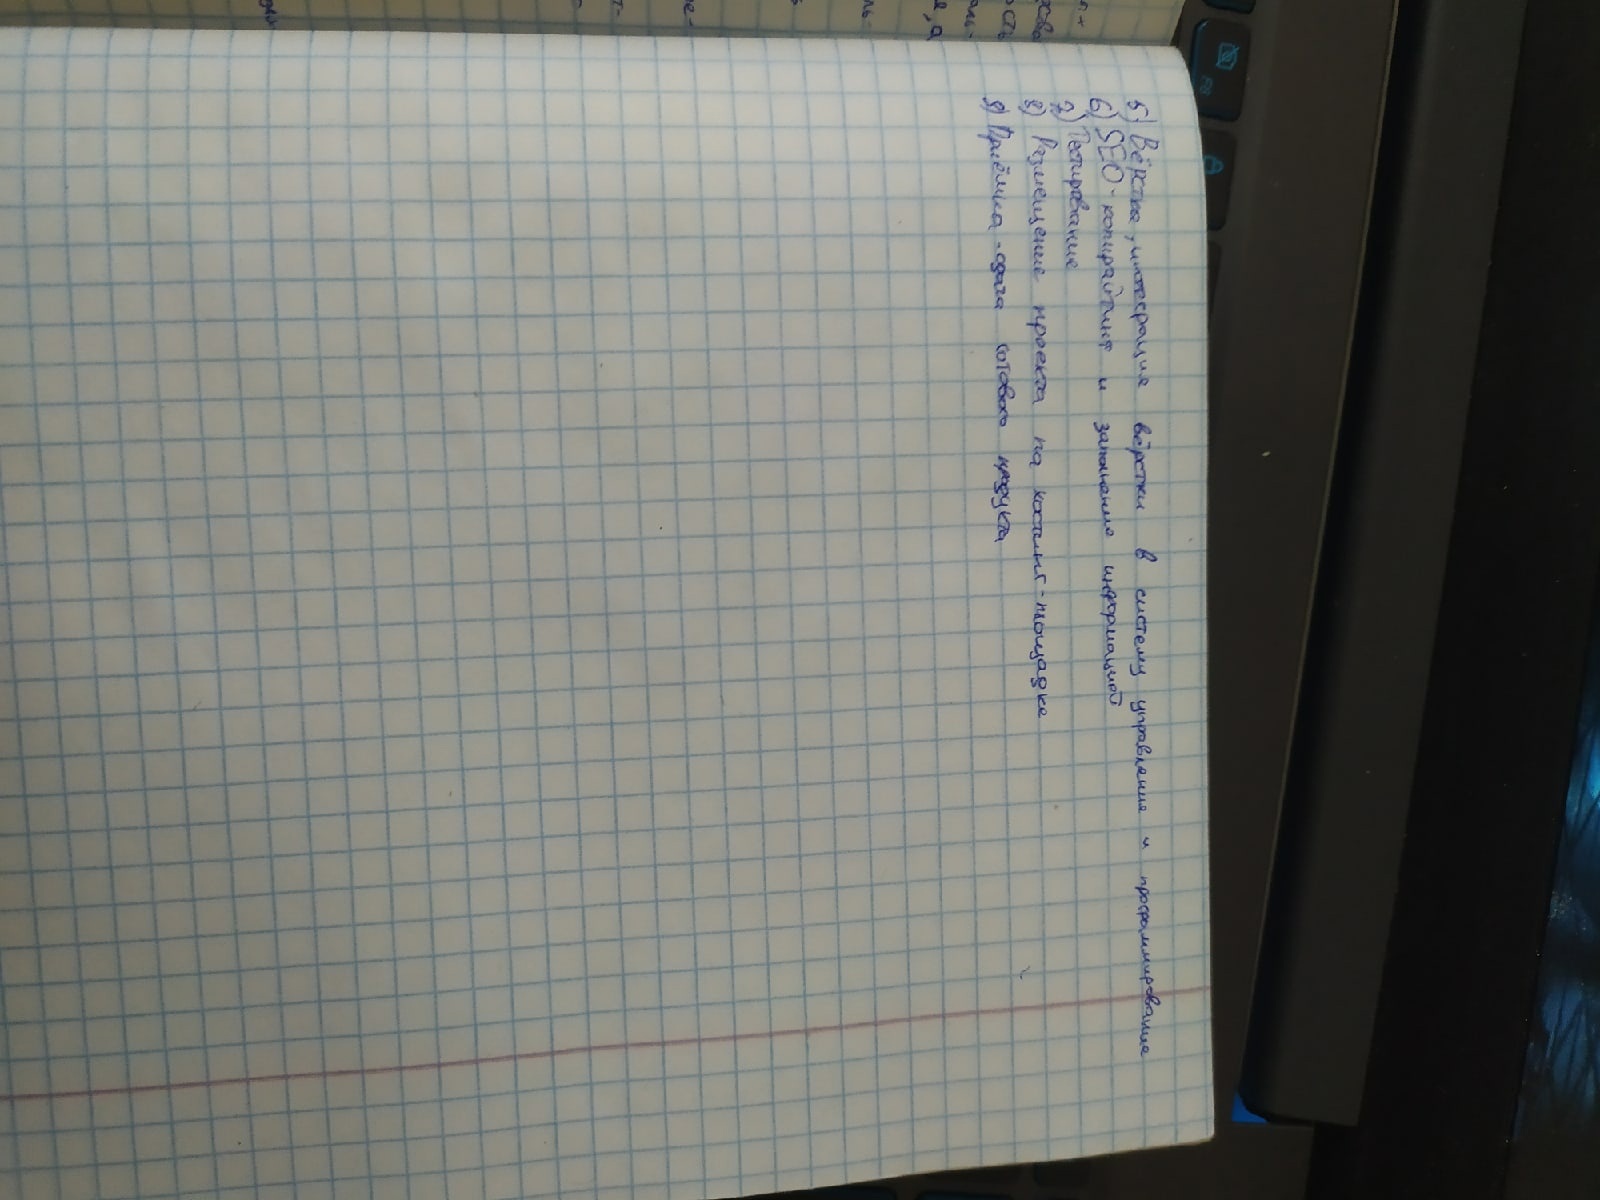 5) Вёрстка, интеграция вёрстки в систему управления и программирование
6) SEO-копирайтинг и заполнение информацией
7) Тестирование
8) Размещение проекта на хостинг-площадке
9) Приёмка-сдача готового продукта
F8